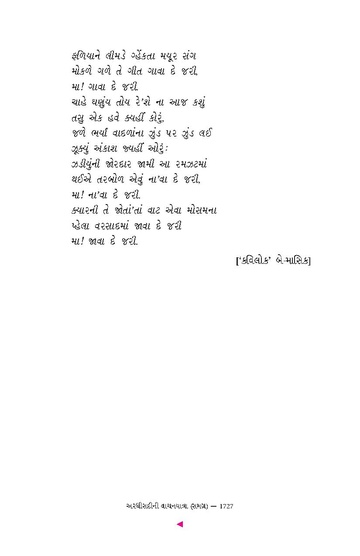 ફળિયાને લીમડે ગ્હેંકતા મયૂર સંગ
મોકળે ગળે તે ગીત ગાવા દે જરી,
મા! ગાવા દે જરી.
ચાહે ઘણુંય તોય રે'શે ના આજ કશું
તસુ એક હવે ક્યહીં કોરું,
જળે ભર્યાં વાદળાંના ઝુંડ પર ઝુંડ લઈ
ઝૂક્યું અંકાશ જ્યહીં ઓરું:
ઝડીયુંની જોરદાર જામી આ રમઝટમાં
થઈએ તરબોળ એવું ના'વા દે જરી,
મા! ના'વા દે જરી.
ક્યારની તે જોતાં'તાં વાટ એવા મોસમના
પ્હેલા વરસાદમાં જાવા દે જરી
મા! જાવા દે જરી.
['કવિલોક' બે-માસિક]
અરધીસદીની વાચનયાત્રા (સમગ્ર) — 1727